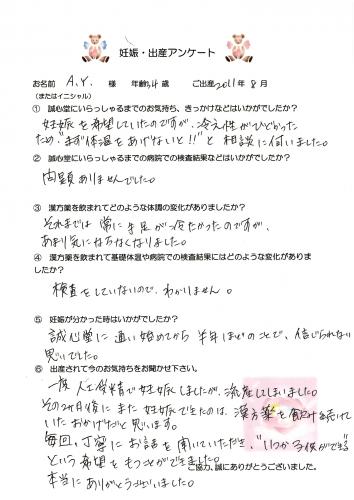 妊娠・出産アンケート
お名前 A.Y. 様 年齢34歳 ご出産2011年 8月
(またはイニシャル)
① 誠心堂にいらっしゃるまでのお気持ち、きっかけなどはいかがでしたか？
妊娠を希望していたのですが、冷え性がひどかった
ため、"まず体温をあげないと!!"と相談に伺いました。
② 誠心堂にいらっしゃるまでの病院での検査結果などはいかがでしたか？
問題ありませんでした。
③ 漢方薬を飲まれてどのような体調の変化がありましたか？
それまでは常に手足が冷たかったのですが、
あまり気にならなくなりました。
④ 漢方薬を飲まれて基礎体温や病院での検査結果にはどのような変化がありま
したか？
検査をしていないので、わかりません。
⑤ 妊娠が分かった時はいかがでしたか？
誠心堂に通い始めてから半年ほどのことで、信じられない
思いでした。
⑥ 出産されて今のお気持ちをお聞かせ下さい。
一度人工授精で妊娠しましたが、流産してしまいました。
その2ヶ月後にまた妊娠できたのは、漢方薬を飲み続けて
いたおかげだと思います。
毎回、丁寧にお話を聞いていただき、"いつか子供ができる"
という希望をもつことができました。
ご協力、誠にありがとうございました。
本当にありがとうございました。